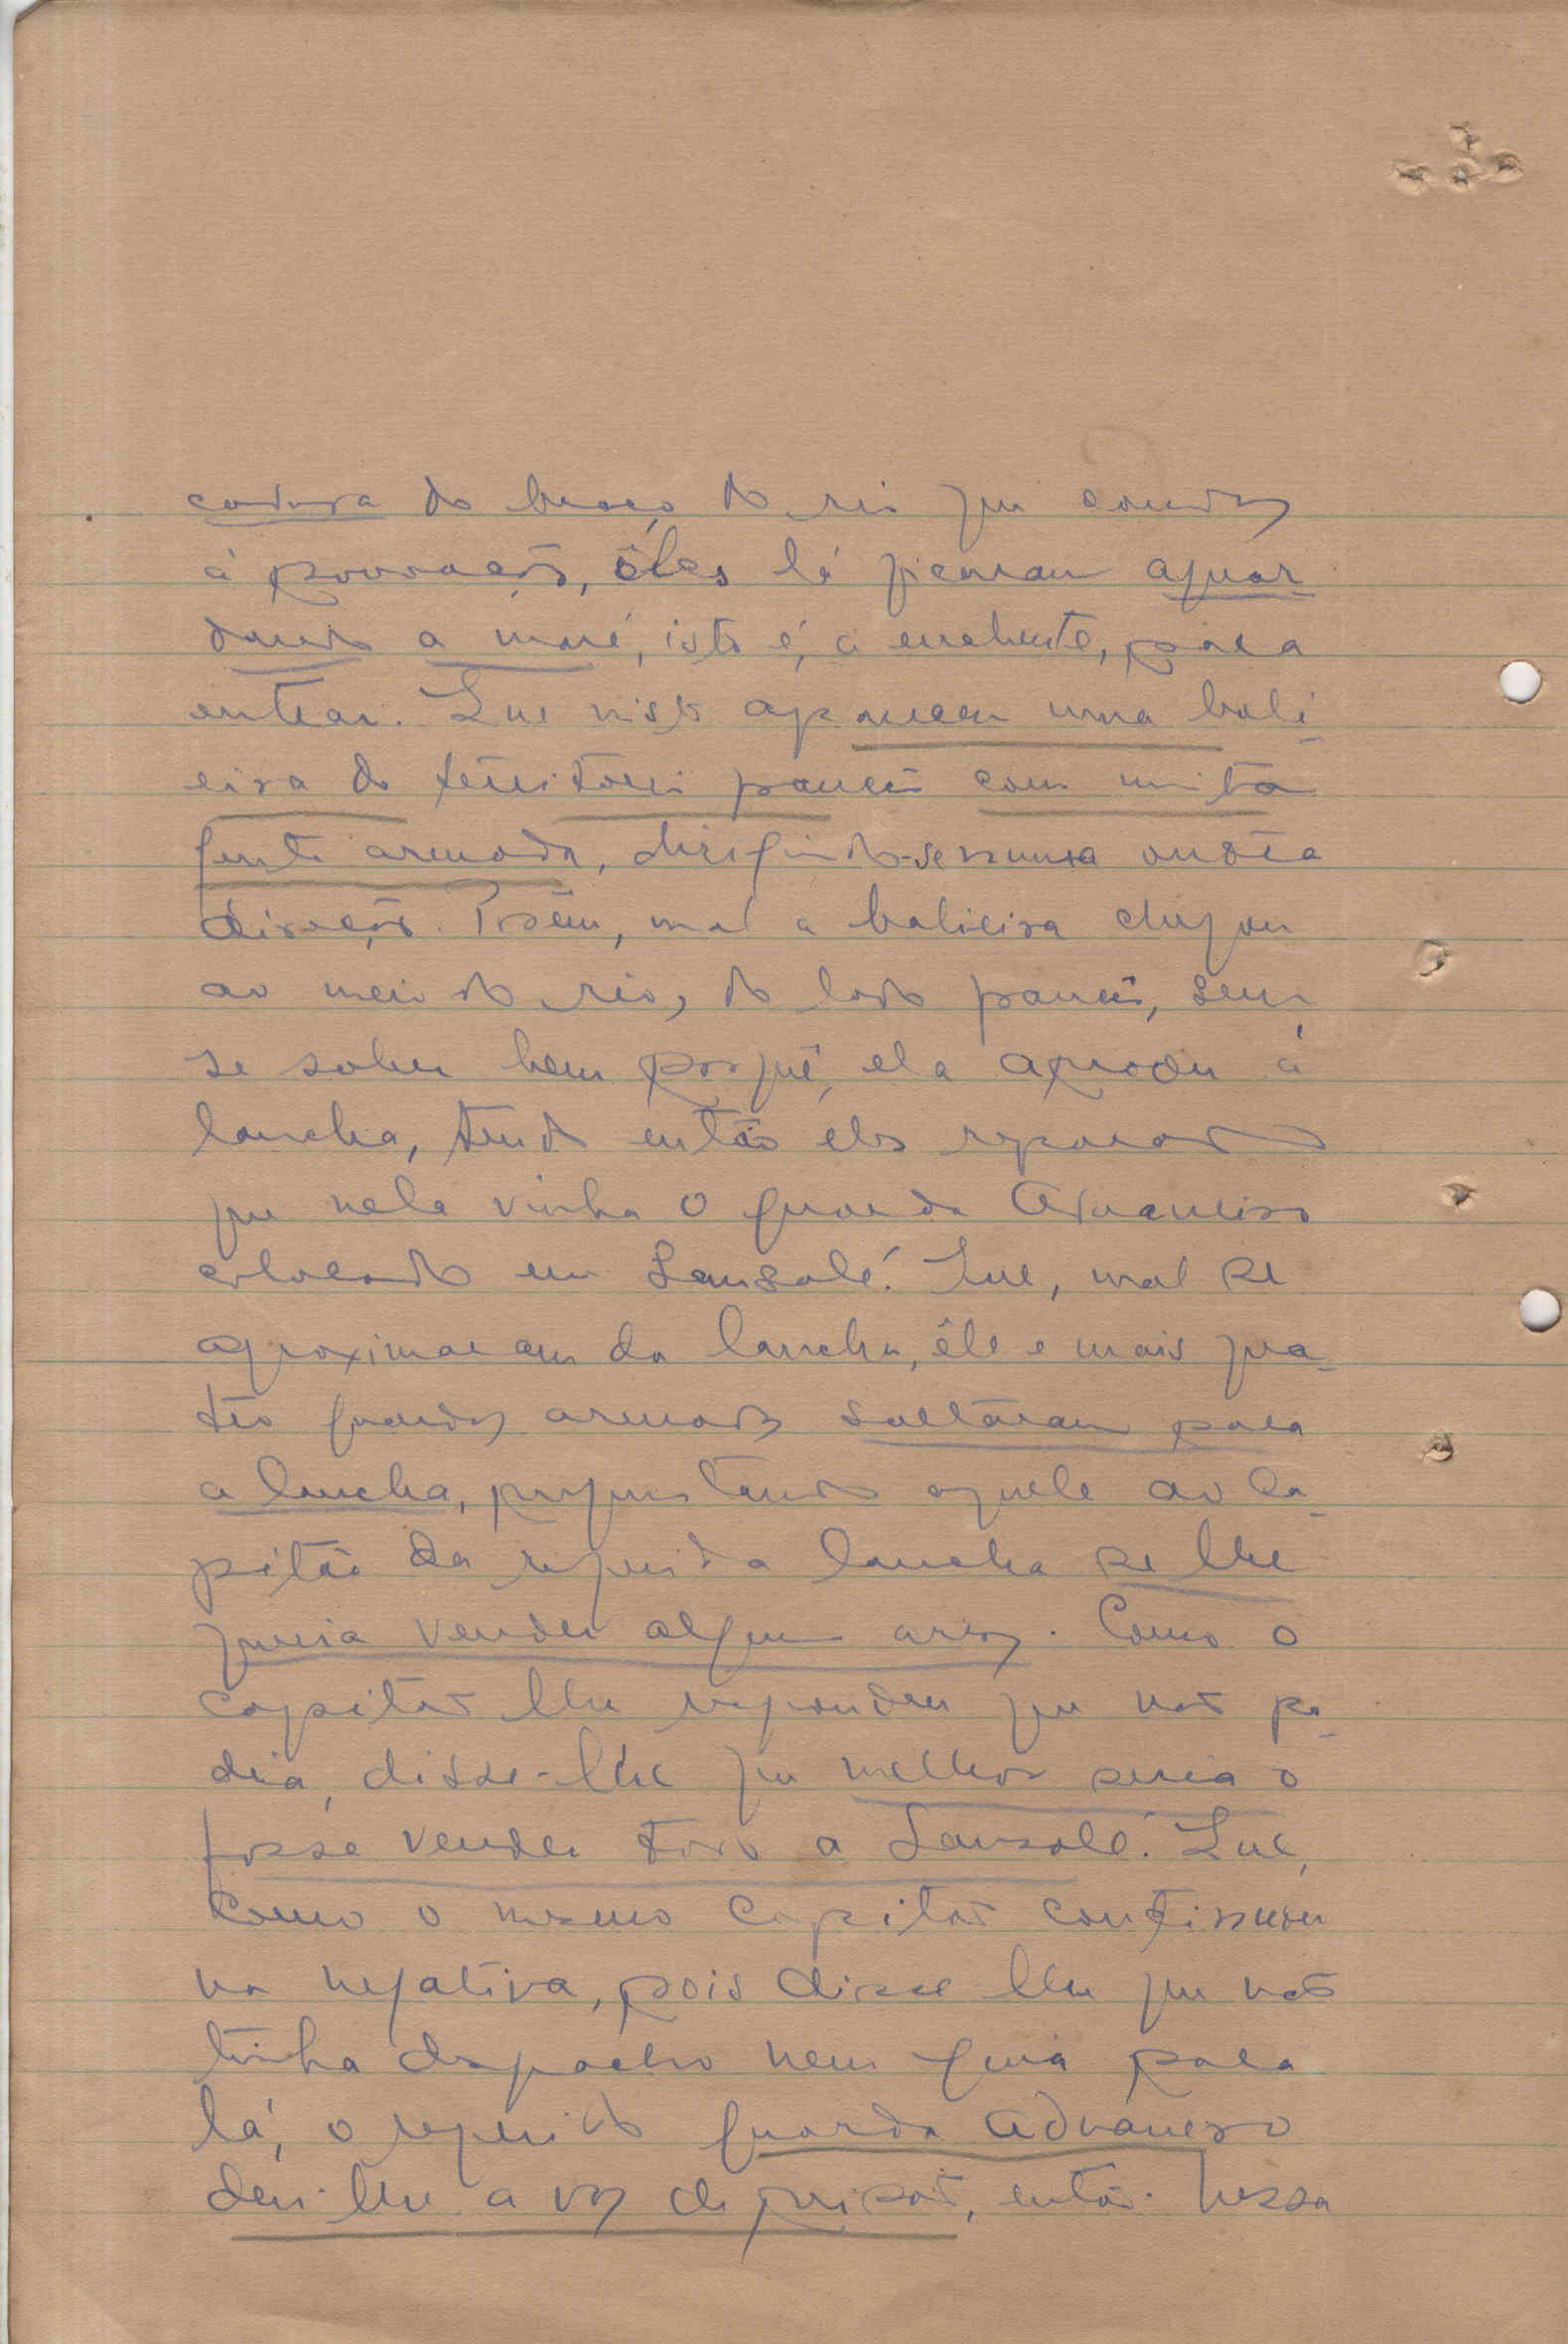 do braço do rio que conduz
à povoação, êles lá ficaram aguar-
dando a maré, isto é, a enchente, para
entrar. Que nisto apareceu uma bali-
eira do território francês com muita
gente armada, dirigindo-se numa outra
direcção. Porém, mal a balieira chegou
ao meio do rio, do lado francês, sem
se saber bem porquê, ela aproou à
lancha, tendo então eles reparado
que nela vinha o guarda Aduaneiro
colocado em Sansalé. Que, mal se
aproximaram da lancha, êle e mais qua-
tro guardas armados saltaram para
a lancha, perguntando aquele ao Ca-
pitão da referida lancha se lhe
queria vender algum arroz. Como o
Capitão lhe respondeu que não po-
dia, disse-lhe que melhor seria o
fosse vender todo a Sansalé. Que,
como o mesmo Capitão continuou
na negativa, pois disse lhe que não
tinha despacho nem guia para
lá, o referido guarda Aduaneiro
deu-lhe a voz de prisão, então. Nessa